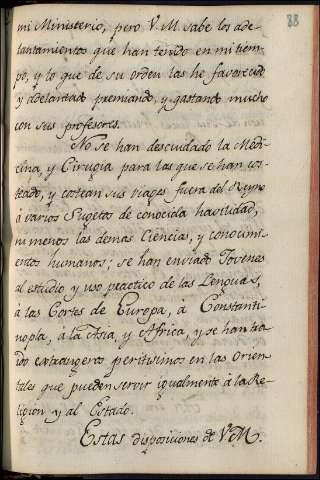 88
mi Ministerio, pero V. M. sabe los ade-
lantamientos que han tenido en mi tiem-
po, y lo que de su orden las he favorecido
y adelantado premiando, y gastando mucho
con sus profesores.
No se han descuidado la Medi-
cina, y Cirugia para las que se han cos-
teado, y costean sus viages fuera del Reyno
à varios Sugetos de conocida havilidad,
ni menos las demas Ciencias, y conocimi-
entos humanos; se han enviado Jovenes
al estudio y uso practico de las Lenguas,
à las Cortes de Europa, à Constanti-
nopla, à la Asia, y Africa, y se han tra-
ido extrangeros peritisimos en las Orien-
tales que pueden servir igualmente à la Re-
ligion y al Estado.
Estas disposiciones de V. M.